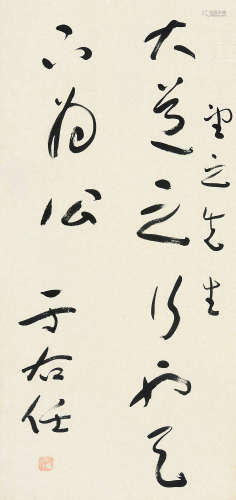 望之先生
大道之行也天
下為公
于右任